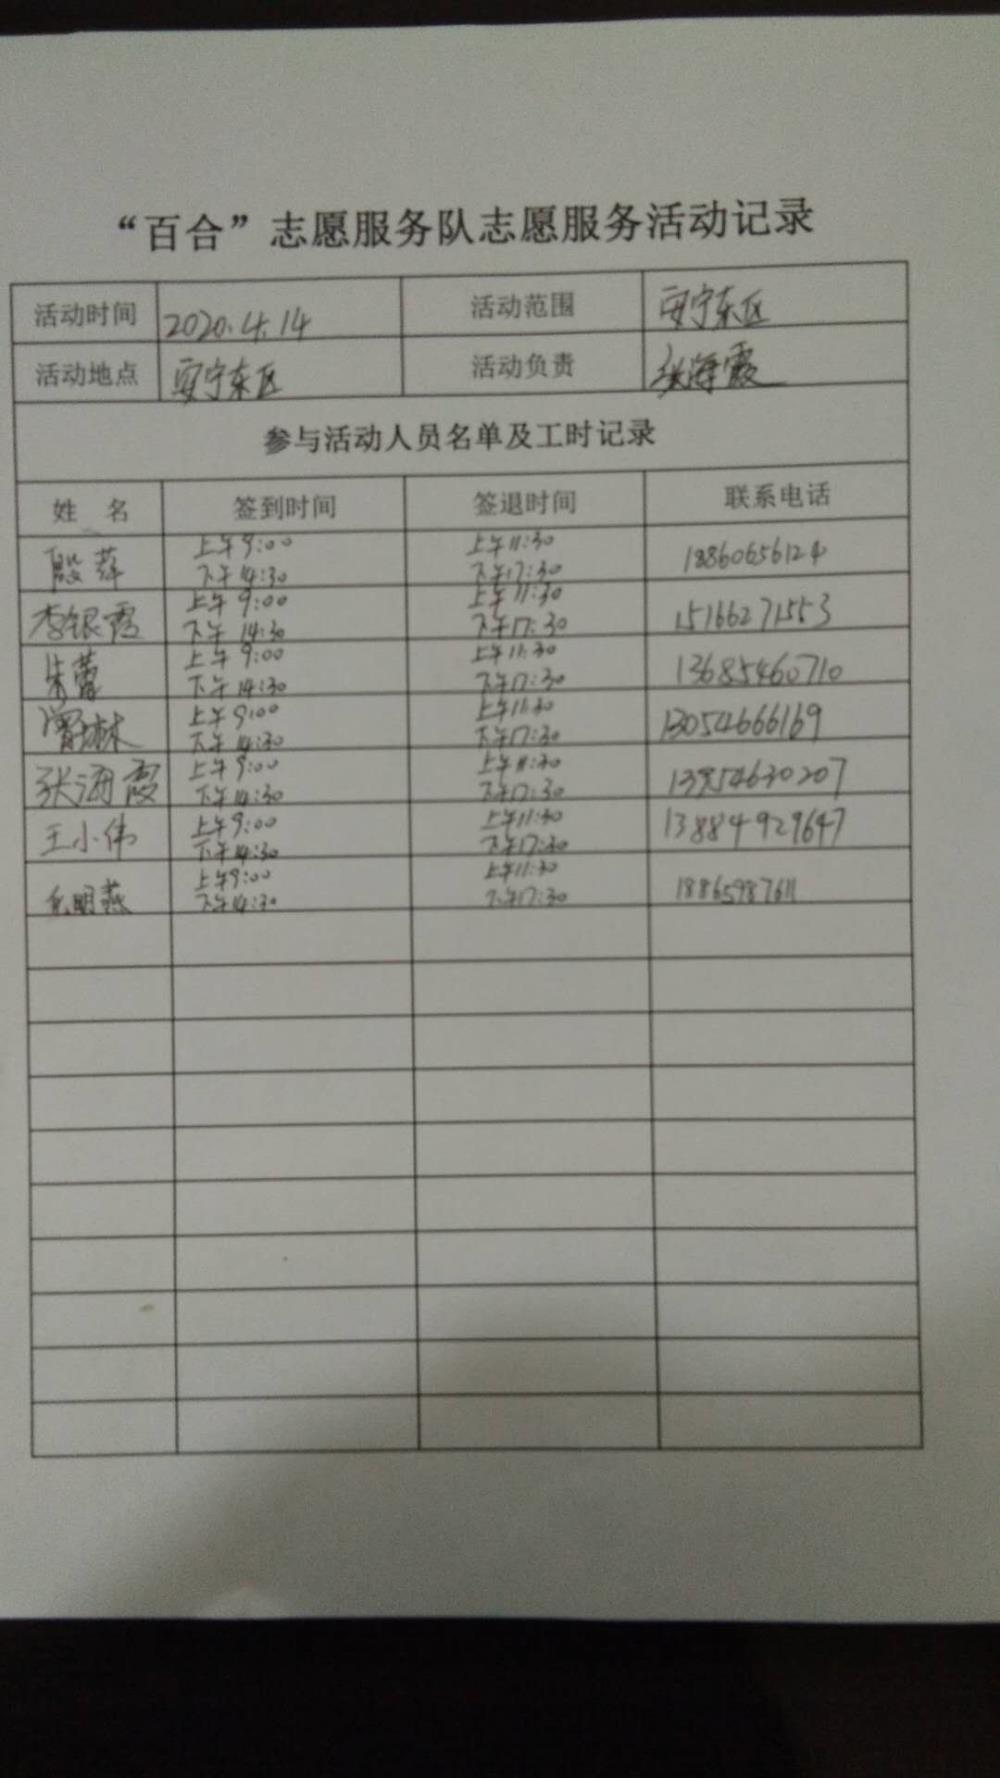 “百合”志愿服务队志愿服务活动记录
活动时间 2020.4.14 活动范围 安宁东区
活动地点 安宁东区 活动负责 张海霞
参与活动人员名单及工时记录
姓 名 签到时间 签退时间 联系电话
殷萍 上午9:00 上午11:30 18860656124
下午14:30 下午17:30
李银霞 上午9:00 上午11:30 15166271553
下午14:30 下午17:30
朱蕾 上午9:00 上午11:30 13685460710
下午14:30 下午17:30
上午9:00 上午11:30 13054666169
下午14:30 下午17:30
张海霞 上午9:00 上午11:30 13954630207
下午14:30 下午17:30
王小伟 上午9:00 上午11:30 13884929647
下午14:30 下午17:30
上午9:00 上午11:30 18865987611
下午14:30 下午17:30